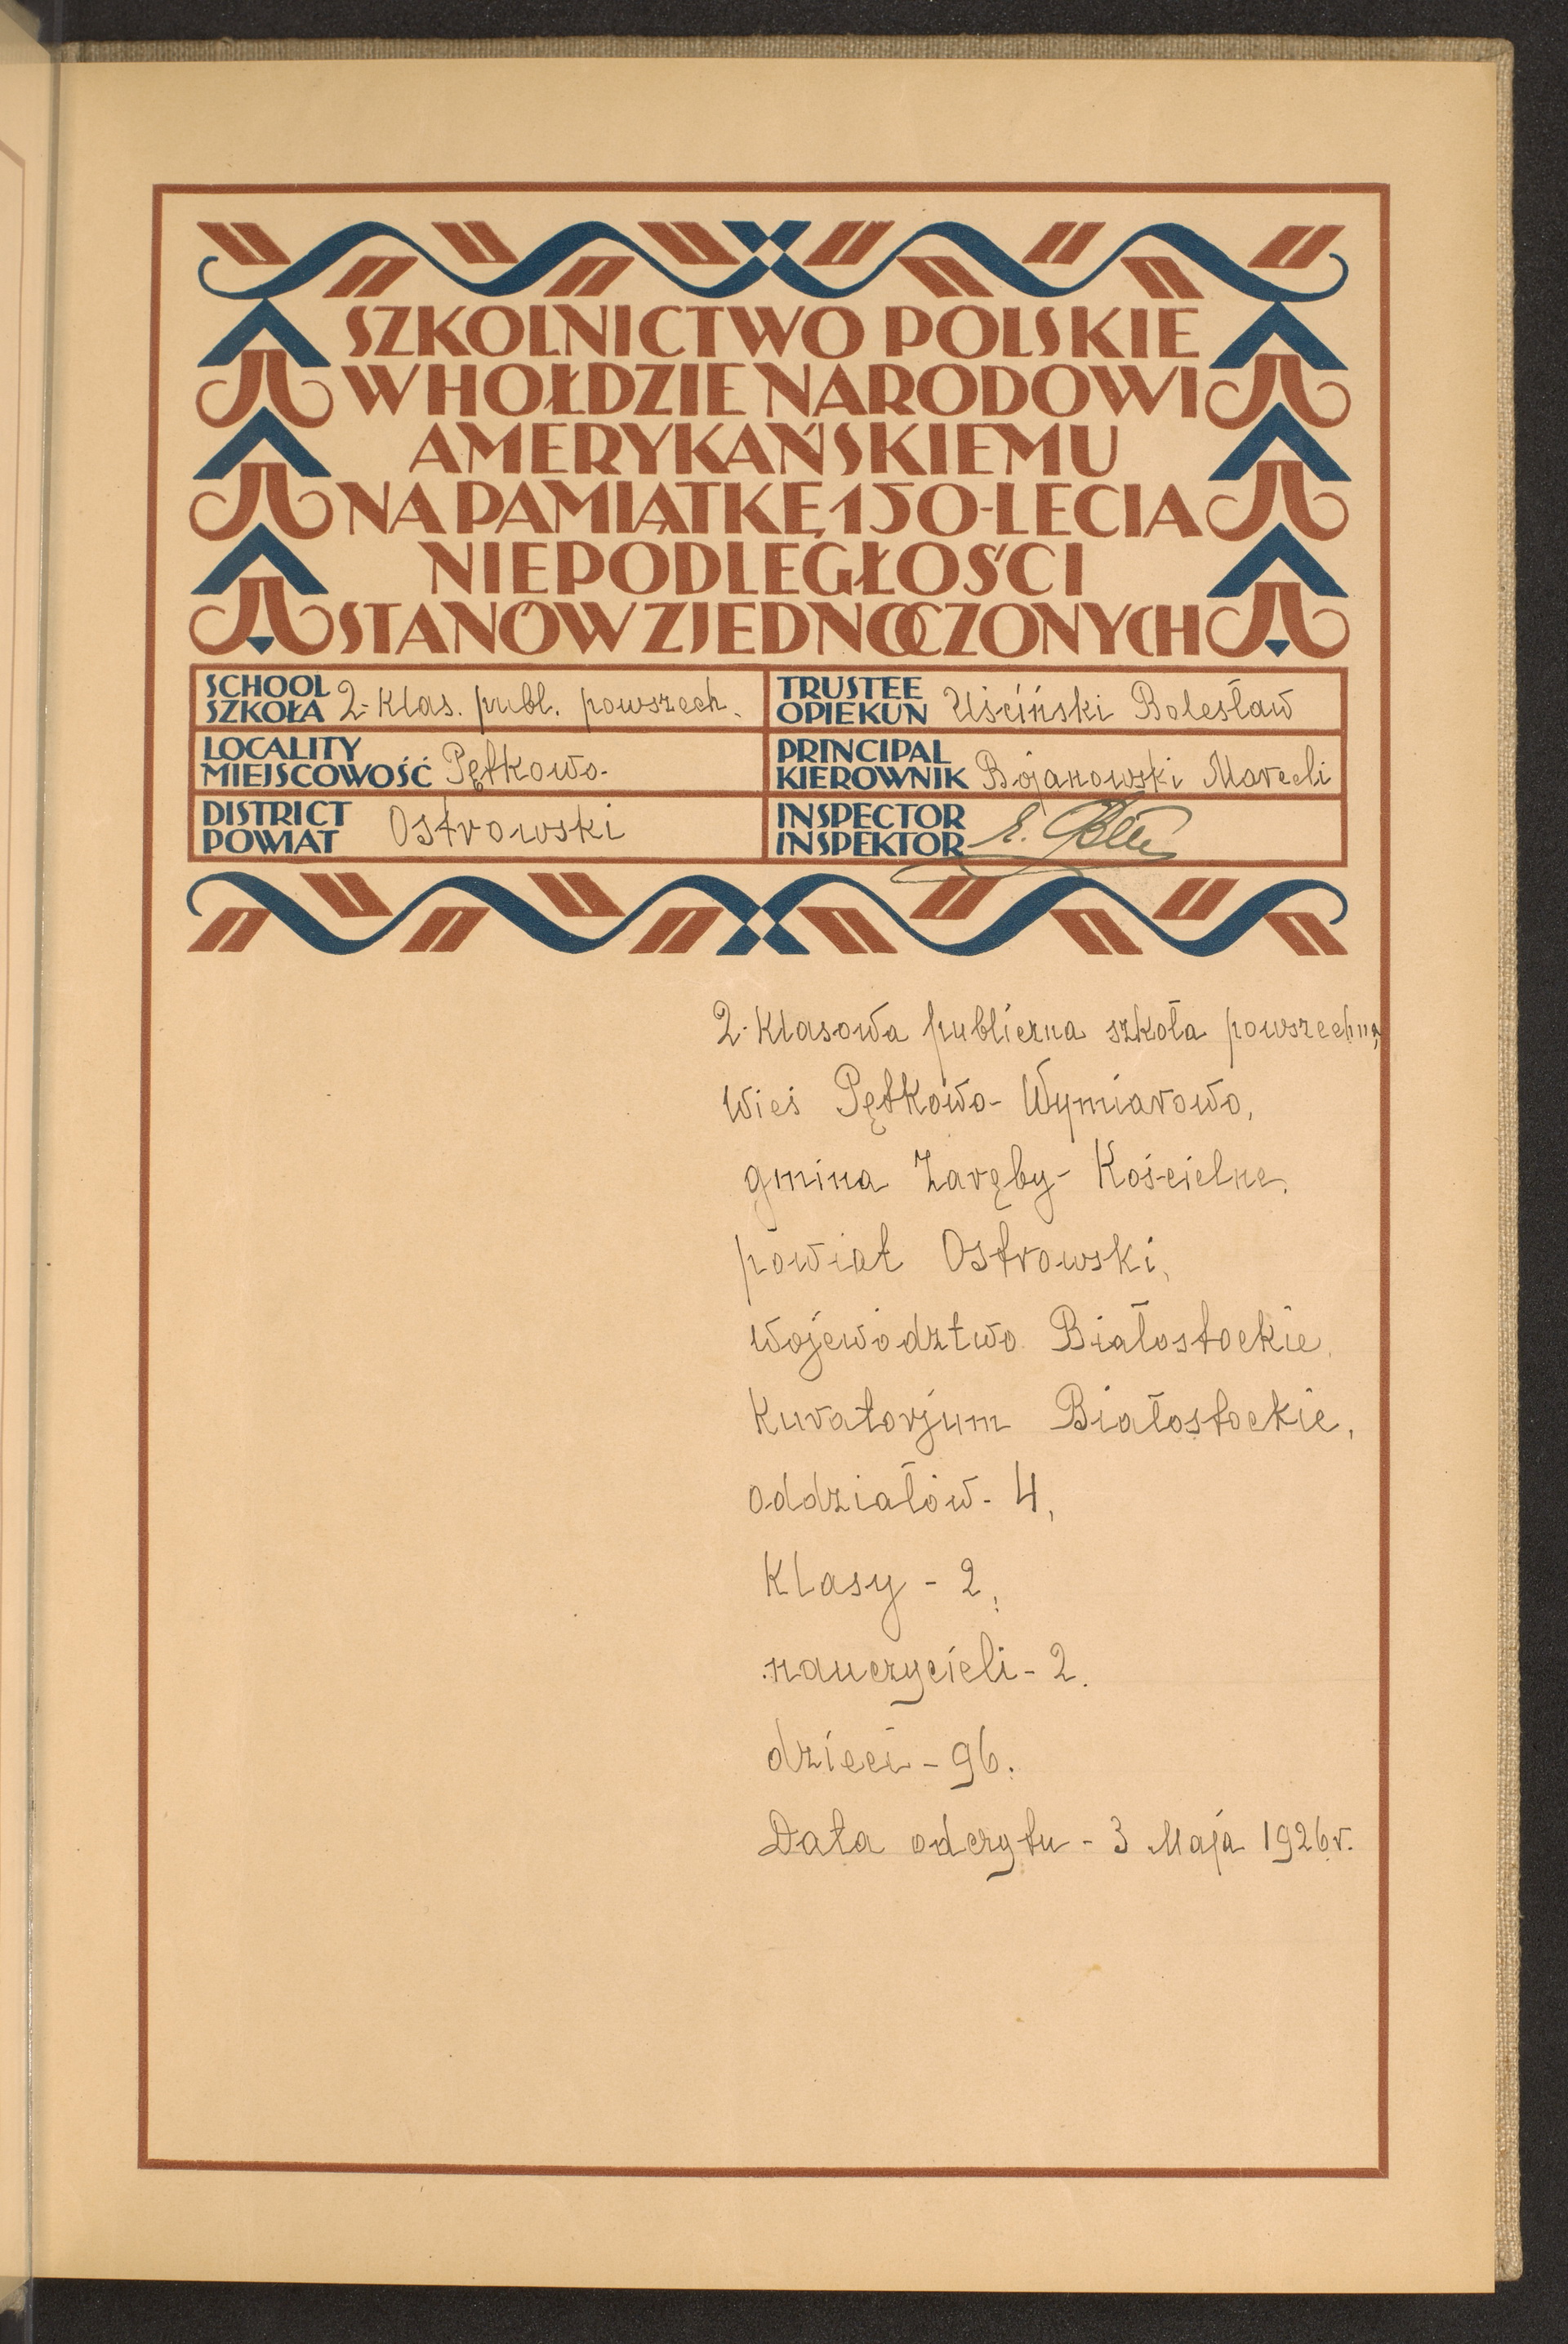 SZKOLNICTWO POLSKIE
W HOŁDZIE NARODOWI
AMERYKAŃSKIEMU
NA PAMIĄTKĘ 150-LECIA
NIEPODLEGŁOŚCI
STANÓW ZJEDNOCZONYCH
SCHOOL
SZKOŁA 2-klas. publ. powszech.
TRUSTEE
OPIEKUN Uściński Bolesław
LOCALITY
MIEJSCOWOŚĆ Pętkowo-
PRINCIPAL
KIEROWNIK Bojanowski Marceli
DISTRICT
POWIAT Ostrowski
INSPECTOR
INSPEKTOR
2-klasowa publiczna szkoła powszechna,
wieś Pętkowo-Wymiarowo,
gmina Zaręby-Kościelne,
powiat Ostrowski,
województwo Białostockie,
Kuratorjum Białostockie,
oddziałów - 4,
klasy - 2,
nauczycieli - 2.
dzieci - 96.
Data odczytu - 3 Maja 1926 r.